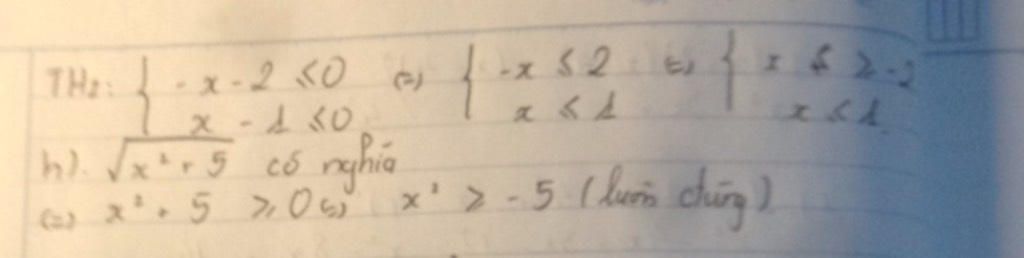 TH2: { -x - 2 ≤ 0 (=) { -x ≤ 2 (=) { x ≥ -2
x - 1 ≤ 0 x ≤ 1 x ≤ 1
h). √x² + 5 có nghĩa
(=) x² + 5 ≥ 0 (=) x² ≥ -5 (luôn đúng)